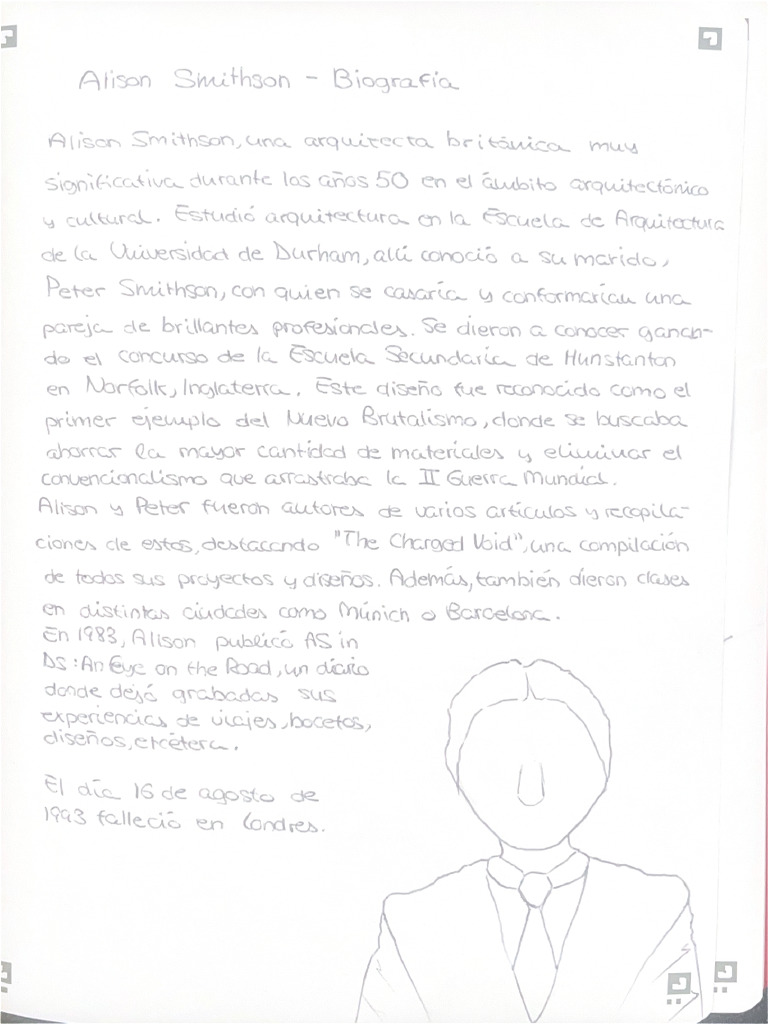 Alison Smithson - Biografía
Alison Smithson, una arquitecta británica muy
significativa durante los años 50 en el ámbito arquitectónico
y cultural. Estudió arquitectura en la Escuela de Arquitectura
de la Universidad de Durham, allí conoció a su marido,
Peter Smithson, con quien se casaría y conformarían una
pareja de brillantes profesionales. Se dieron a conocer ganan-
do el concurso de la Escuela Secundaria de Hunstanton
en Norfolk, Inglaterra. Este diseño fue reconocido como el
primer ejemplo del Nuevo Brutalismo, donde se buscaba
ahorrar la mayor cantidad de materiales y eliminar el
convencionalismo que arrastraba la II Guerra Mundial.
Alison y Peter fueron autores de varios artículos y recopila-
ciones de estos, destacando "The Charged Void", una compilación
de todos sus proyectos y diseños. Además, también dieron clases
en distintas ciudades como Múnich o Barcelona.
En 1983, Alison publicó AS in
DS: An Eye on the Road, un diario
donde dejó grabadas sus
experiencias de viajes, bocetos,
diseños, etcétera.
El día 16 de agosto de
1993 falleció en Londres.